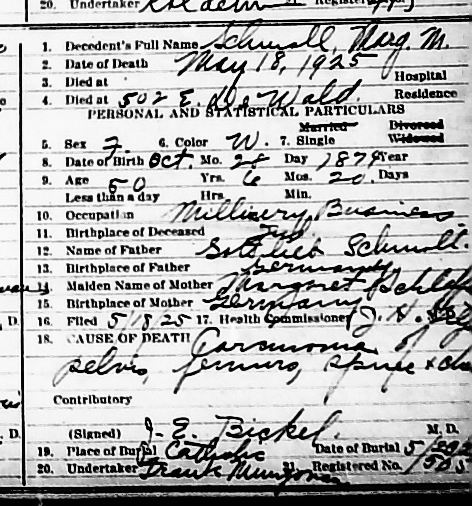 20. Undertaker
1. Decedent's Full Name Schmoll, Marg. M.
2. Date of Death May 18, 1925
3. Died at Hospital
4. Died at 502 E. De Wald Residence
PERSONAL AND STATISTICAL PARTICULARS
Married Divorced
5. Sex F. 6. Color W. 7. Single Widowed
8. Date of Birth Oct. Mo. 28 Day 1874 Year
9. Age 50 Yrs. 6 Mos. 20. Days
Less than a day Hrs. Min.
10. Occupation Millinery Business
11. Birthplace of Deceased Ind
12. Name of Father Gottlieb Schmoll
13. Birthplace of Father Germany
14. Maiden Name of Mother Margaret
15. Birthplace of Mother Germany
16. Filed 5/18/25 17. Health Commissioner J. H.
18. CAUSE OF DEATH Carcinoma of
pelvis, femurs, spine +
Contributory
(Signed) J. E. Bickel. M. D.
19. Place of Burial Catholic Date of Burial 5/20
20. Undertaker Frank 21. Registered No.